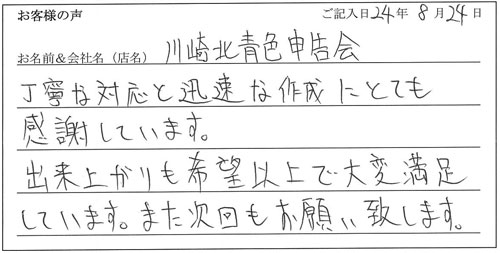 お客様の声 ご記入日 24年 8月 24日
お名前&会社名（店名） 川崎北青色申告会
丁寧な対応と迅速な作成にとても
感謝しています。
出来上がりも希望以上で大変満足
しています。また次回もお願い致します。